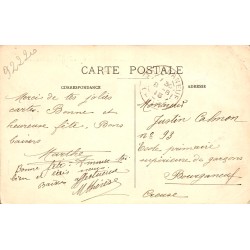 92224
CARTE POSTALE
CORRESPONDANCE
ADRESSE
Merci de tes jolies
cartes. Bonne et
heureuse fête. Bons
baisers
Marthe
Bonne fête. Amuse toi
bien et
baisers
Monsieur
Justin Calmon
n° 93
Ecole primaire
supérieure de garçons
Bourganeuf
Creuse